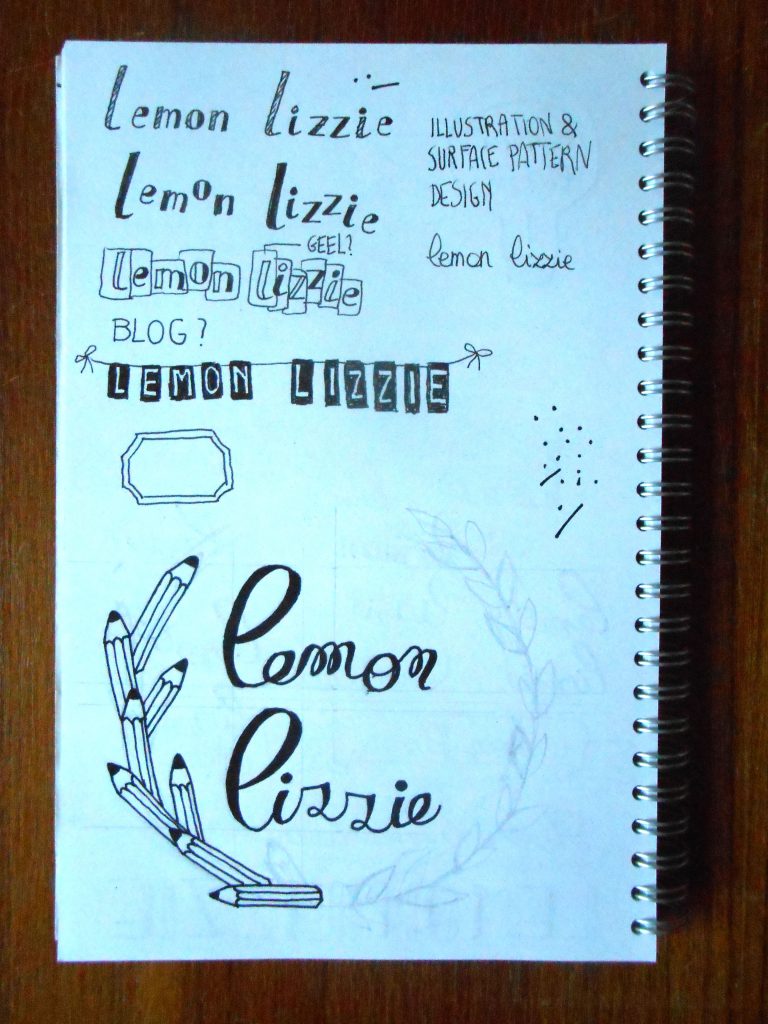 lemon lizzie
lemon lizzie
GEEL?
lemon lizzie
BLOG?
LEMON LIZZIE
ILLUSTRATION &
SURFACE PATTERN
DESIGN
lemon lizzie
lemon
lizzie